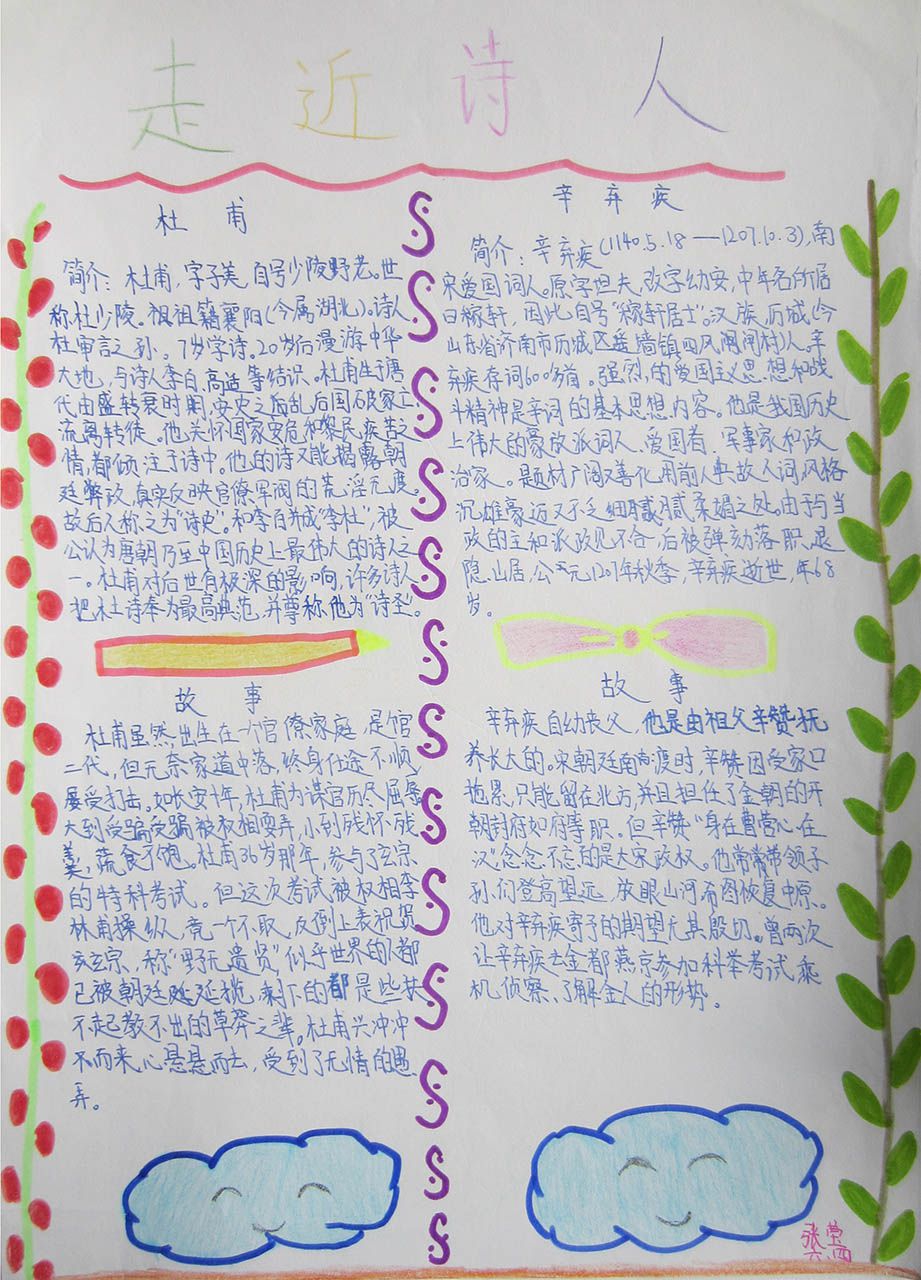 走近诗人
杜甫
简介：杜甫，字子美，自号少陵野老。世
称杜少陵。祖祖籍襄阳（今属湖北）。诗人
杜审言之孙。7岁学诗。20岁后漫游中华
大地，与诗人李白、高适等结识。杜甫生于唐
代由盛转衰时期，安史之后乱后国破家亡
流离转徒。他关怀国家安危和黎民疾苦之
情都倾注于诗中。他的诗又能揭露朝
廷弊政，真实反映官僚军阀的荒淫无度。
故后人称之为“诗史”。和李白并成“李杜”，被
公认为唐朝乃至中国历史上最伟大的诗人之
一。杜甫对后世有极深的影响，许多诗人
把杜诗奉为最高典范，并尊称他为“诗圣”。
故事
杜甫虽然出生在一个官僚家庭，是官
二代，但无奈家道中落，终身仕途不顺，
屡受打击。如长安十年，杜甫为谋官历尽屈辱
大到受骗受骗被权相耍弄，小到残杯残
羹，蔬食不饱。杜甫36岁那年，参与了玄宗
的特科考试。但这次考试被权相李
林甫操纵，竟一个不取，反倒上表祝贺
玄宗，称“野无遗贤”，似乎世界的都
已被朝廷挑，剩下的都是些扶
不起教不出的草莽之辈。杜甫兴冲冲
而来，心悬悬而去，受到了无情的愚
弄。
辛弃疾
简介：辛弃疾（1140.5.18—1207.10.3），南
宋爱国词人。原字坦夫，改字幼安，中年名所居
曰稼轩，因此自号“稼轩居士”。汉族，历城（今
山东省济南市历城区遥墙镇四风闸村）人。辛
弃疾存词600多首。强烈，的爱国主义思想和战
斗精神是辛词的基本思想内容。他是我国历史
上伟大的豪放派词人、爱国者、军事家和政
治家。题材广阔又善化用前人典故入词，风格
沉雄豪迈又不乏细腻腻柔媚之处。由于与当
政的主和派政见不合，后被弹劾落职，退
隐山居，公元1207年秋季，辛弃疾逝世，年68
岁。
故事
辛弃疾自幼丧父，他是由祖父辛赞抚
养长大的。宋朝廷南渡时，辛赞因受家口
拖累，只能留在北方，并且担任了金朝的开
朝封府知府等职。但辛赞“身在曹营心在
汉”念念不忘的是大宋政权。他常常带领子
孙们登高望远，放眼山河希图恢复中原。
他对辛弃疾寄予的期望尤其殷切。曾两次
让辛弃疾去金都燕京参加科举考试乘
机侦察、了解金人的形势。
六四